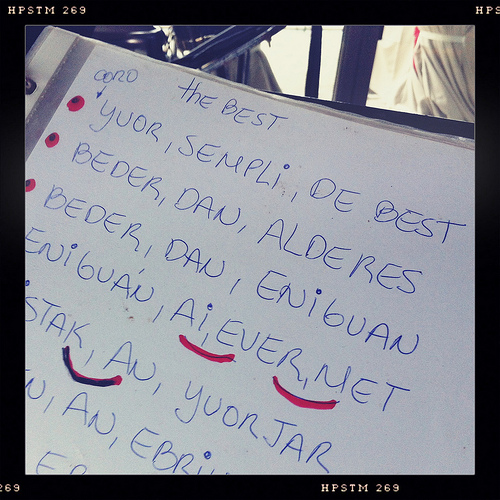 HPSTM 269
HPS
coro the BEST
YUOR, SEMPLi, DE BEST
BEDER, DAN, ALDERES
BEDER, DAN, ENiGUAN
ENiGUAN, Ai, EVER, MET
STAK, AN, YUOR JAR
N, AN, EBRi
269 HPSTM 269